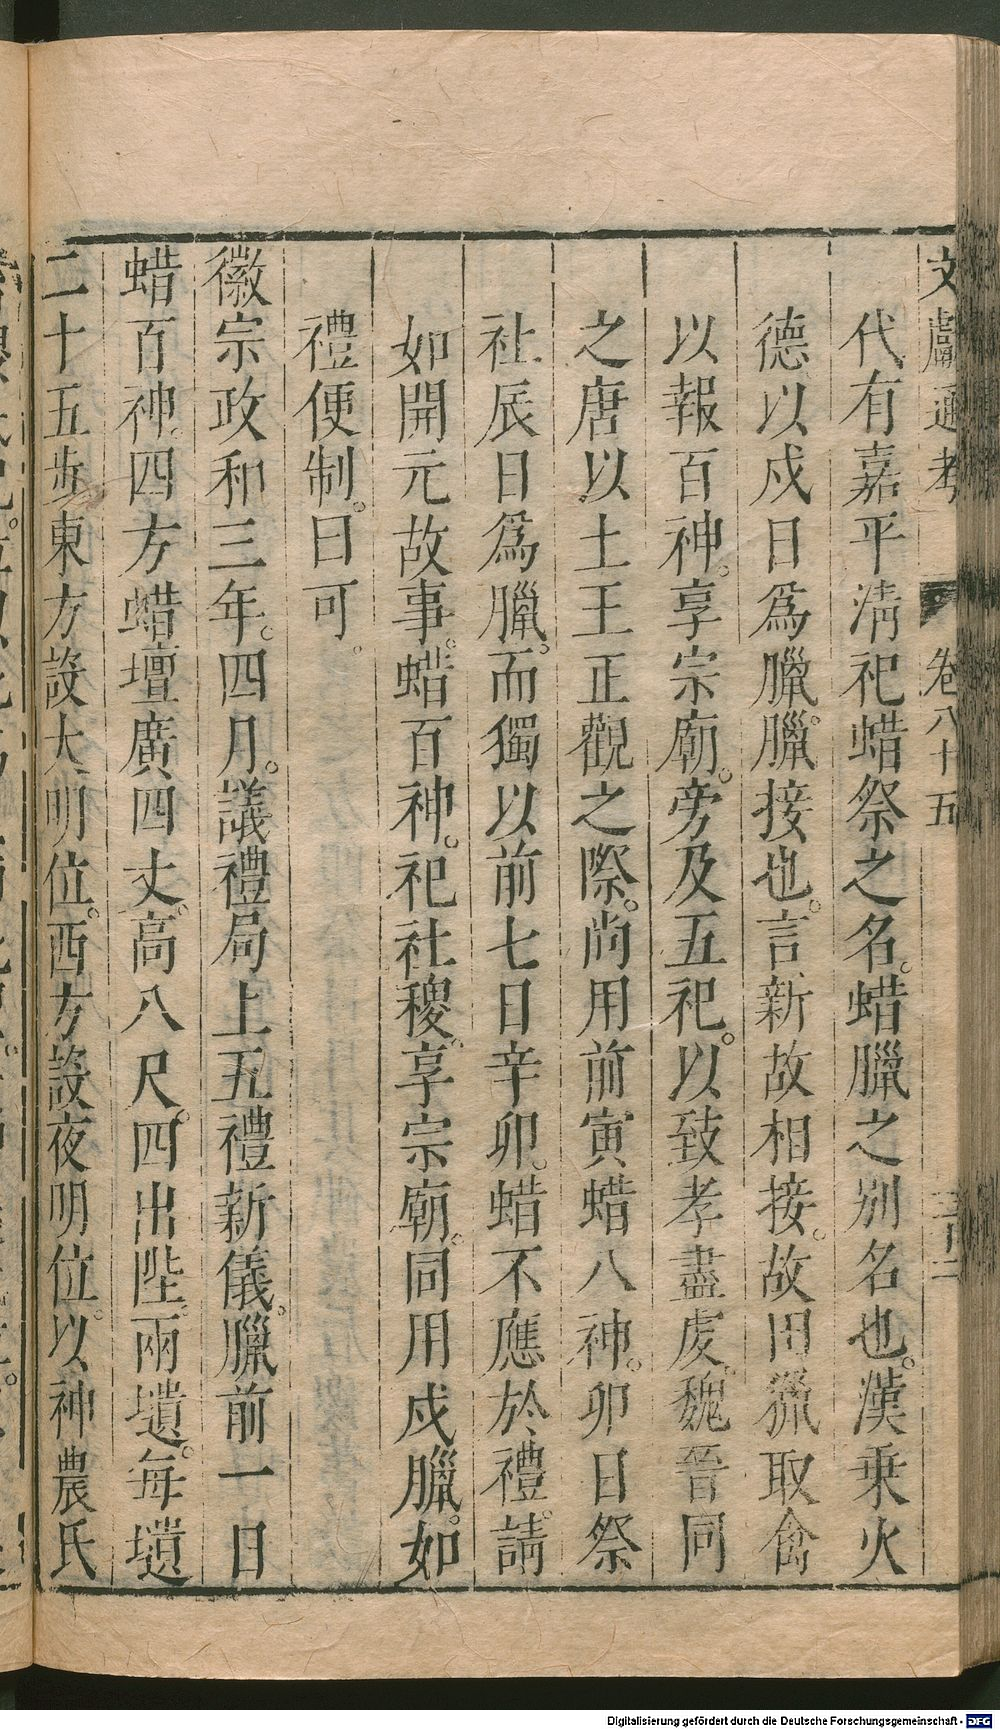 文獻通考 卷八十五 三十二
代有嘉平淸祀蜡祭之名。蜡臘之別名也。漢乗火
德以戌日爲臘。臘接也。言新故相接。故田獵取禽
以報百神。享宗廟。旁及五祀。以致孝盡䖍。魏晉同
之唐以土王正觀之際。尚用前寅蜡八神。卯日祭
社辰日爲臘。而獨以前七日辛卯。蜡不應於禮。請
如開元故事。蜡百神。祀社稷。享宗廟。同用戌臘。如
禮便制。曰可。
徽宗政和三年。四月。議禮局上五禮新儀。臘前一日
蜡百神。四方蜡壇廣四丈。高八尺。四出陛。兩壝。每壝
二十五步東方設大明位。西方設夜明位。以神農氏
Digitalisierung gefördert durch die Deutsche Forschungsgemeinschaft - DFG